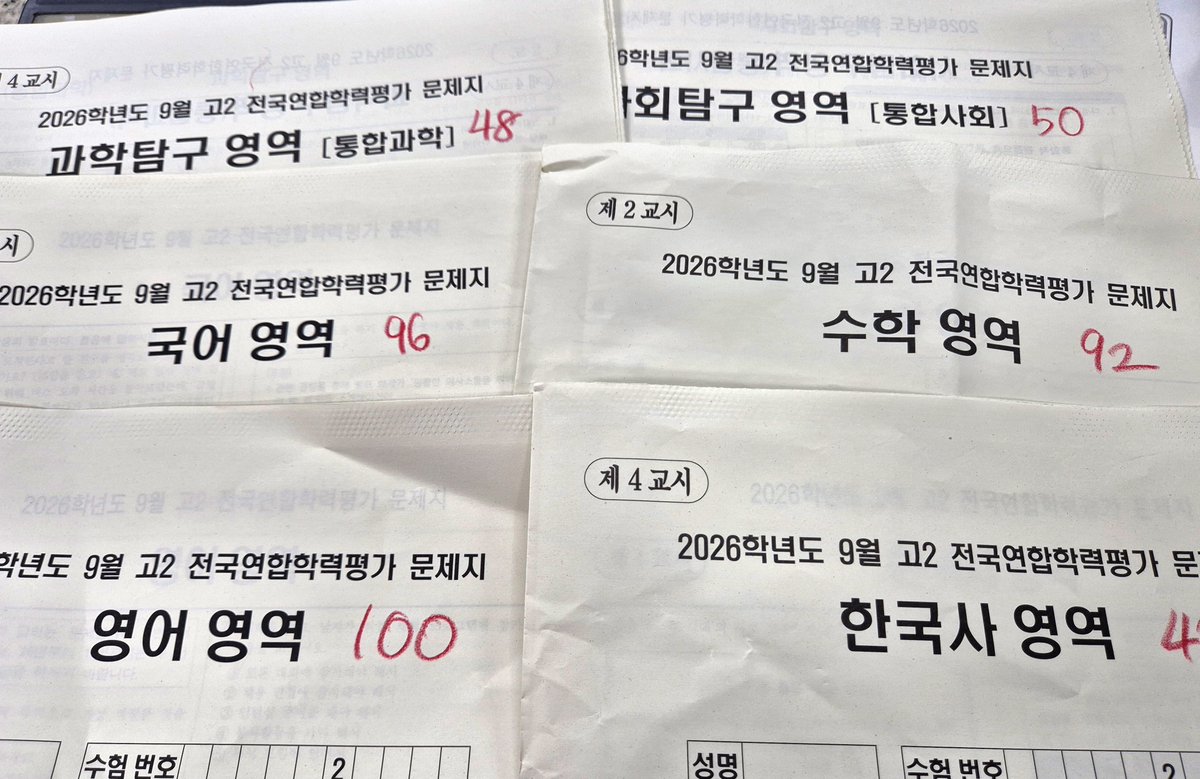 4 교시
2026학년도 9월 고2 전국연합학력평가 문제지
과학탐구 영역 [통합과학] 48
6학년도 9월 고2 전국연합학력평가 문제지
회탐구 영역 [통합사회] 50
시
2026학년도 9월 고2 전국연합학력평가 문제지
국어 영역 96
제 2 교시
2026학년도 9월 고2 전국연합학력평가 문제지
수학 영역 92
학년도 9월 고2 전국연합학력평가 문제지
영어 영역 100
수험 번호 2
제 4 교시
2026학년도 9월 고2 전국연합학력평가 문
한국사 영역 4
성명 수험 번호 2